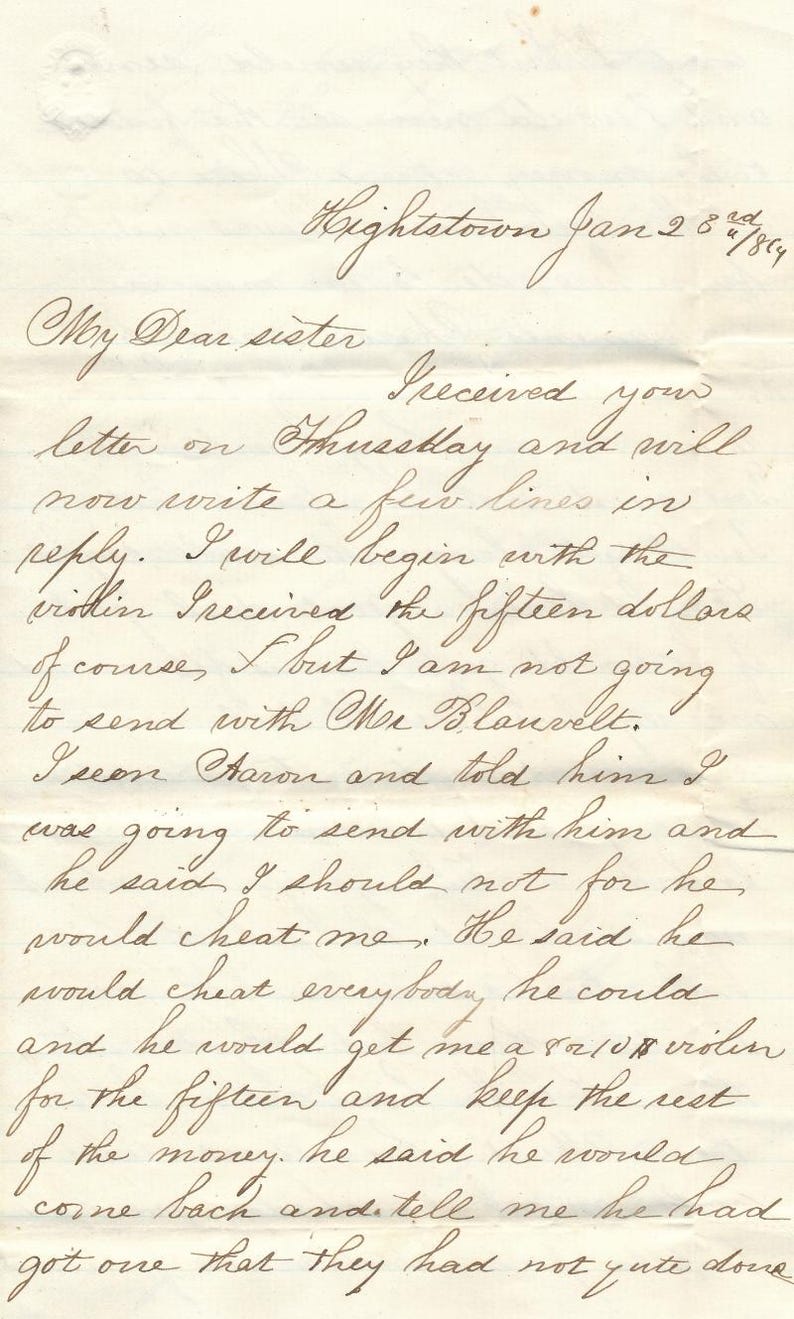 Hightstown Jan 23rd /84
My Dear sister
I received your
letter on Thussday and will
now write a few lines in
reply. I will begin with the
violin I received the fifteen dollars
of course, I but I am not going
to send with Mr Blauvelt.
I seen Aaron and told him I
was going to send with him and
he said I should not for he
would cheat me. He said he
would cheat everybody he could
and he would get me a 8 or 10 $ violin
for the fifteen and keep the rest
of the money. he said he would
come back and tell me he had
got one that they had not qute done